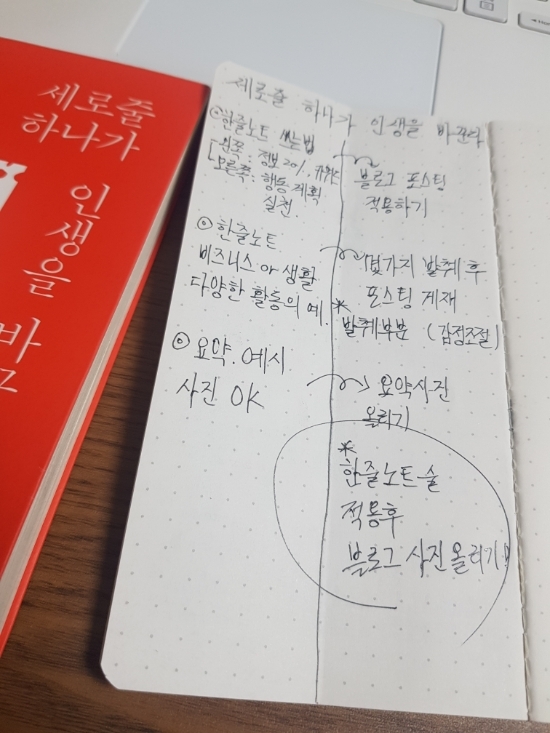 세로줄
하나가
인
생
을
바
세로줄 하나가 인생을 바꾼다
⊙한줄노트 쓰는법
왼쪽: 정보 20%,
오른쪽: 행동 계획
실천
블로그 포스팅
적용하기
⊙ 한줄노트
비즈니스 아 생활
다양한 활동의 예.
몇가지 발췌 후
포스팅 게재
* 발췌부분 (감정조절)
⊙ 요약. 예시
사진 OK
요약사진
올리기
*
한줄노트 술
적용후
블로그 사진 올리기!